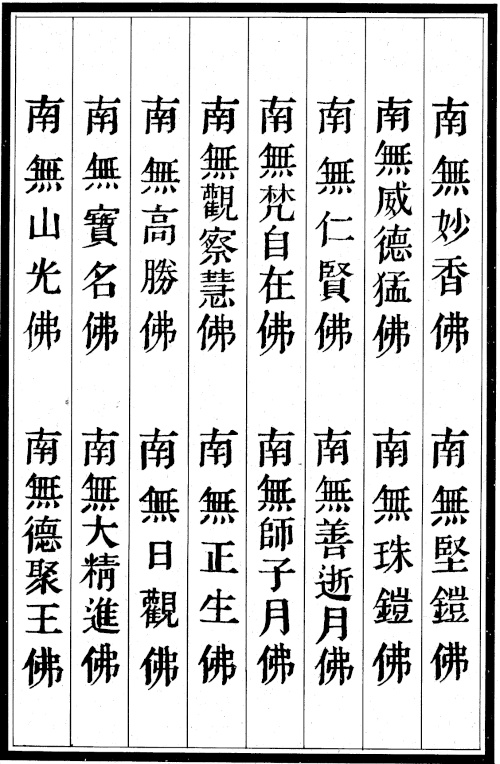 南無妙香佛 南無堅鎧佛
南無威德猛佛 南無珠鎧佛
南無仁賢佛 南無善逝月佛
南無梵自在佛 南無師子月佛
南無觀察慧佛 南無正生佛
南無高勝佛 南無日觀佛
南無寶名佛 南無大精進佛
南無山光佛 南無德聚王佛